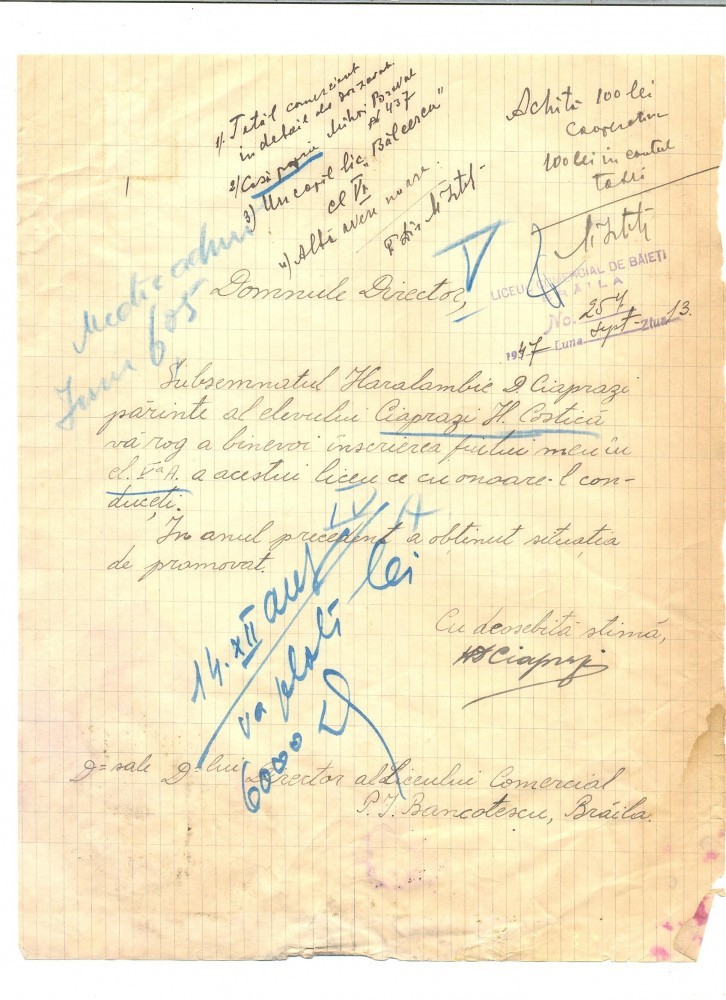 1). Tatăl comerciant
în detail de
2) Casă proprie Mihai Bravul
No 437
3) Un copil lic. "Bălcescu"
cl VI
4) Altă avere nu are.
Achită 100 lei
Cooperativa
100 lei în contul
taxei
V
LICEUL COMERCIAL DE BĂIEȚI
BRĂILA
No. 257
1947 Luna Sept- Ziua 13.
Medie
605
Domnule Director,
Subsemnatul Haralambie D. Ciaprazi
părinte al elevului Ciaprazi H. Costică
vă rog a binevoi înscrierea fiului meu în
cl. Va A. a acestui liceu ce cu onoare-l con-
duceți.
IV A
In anul precedent a obtinut situația
de promovat.
14. XII
va plăti lei
60000
Cu deosebită stimă,
HD Ciaprazi
D=sale D=lui Director al Liceului Comercial
P. I. Bancotescu, Brăila.